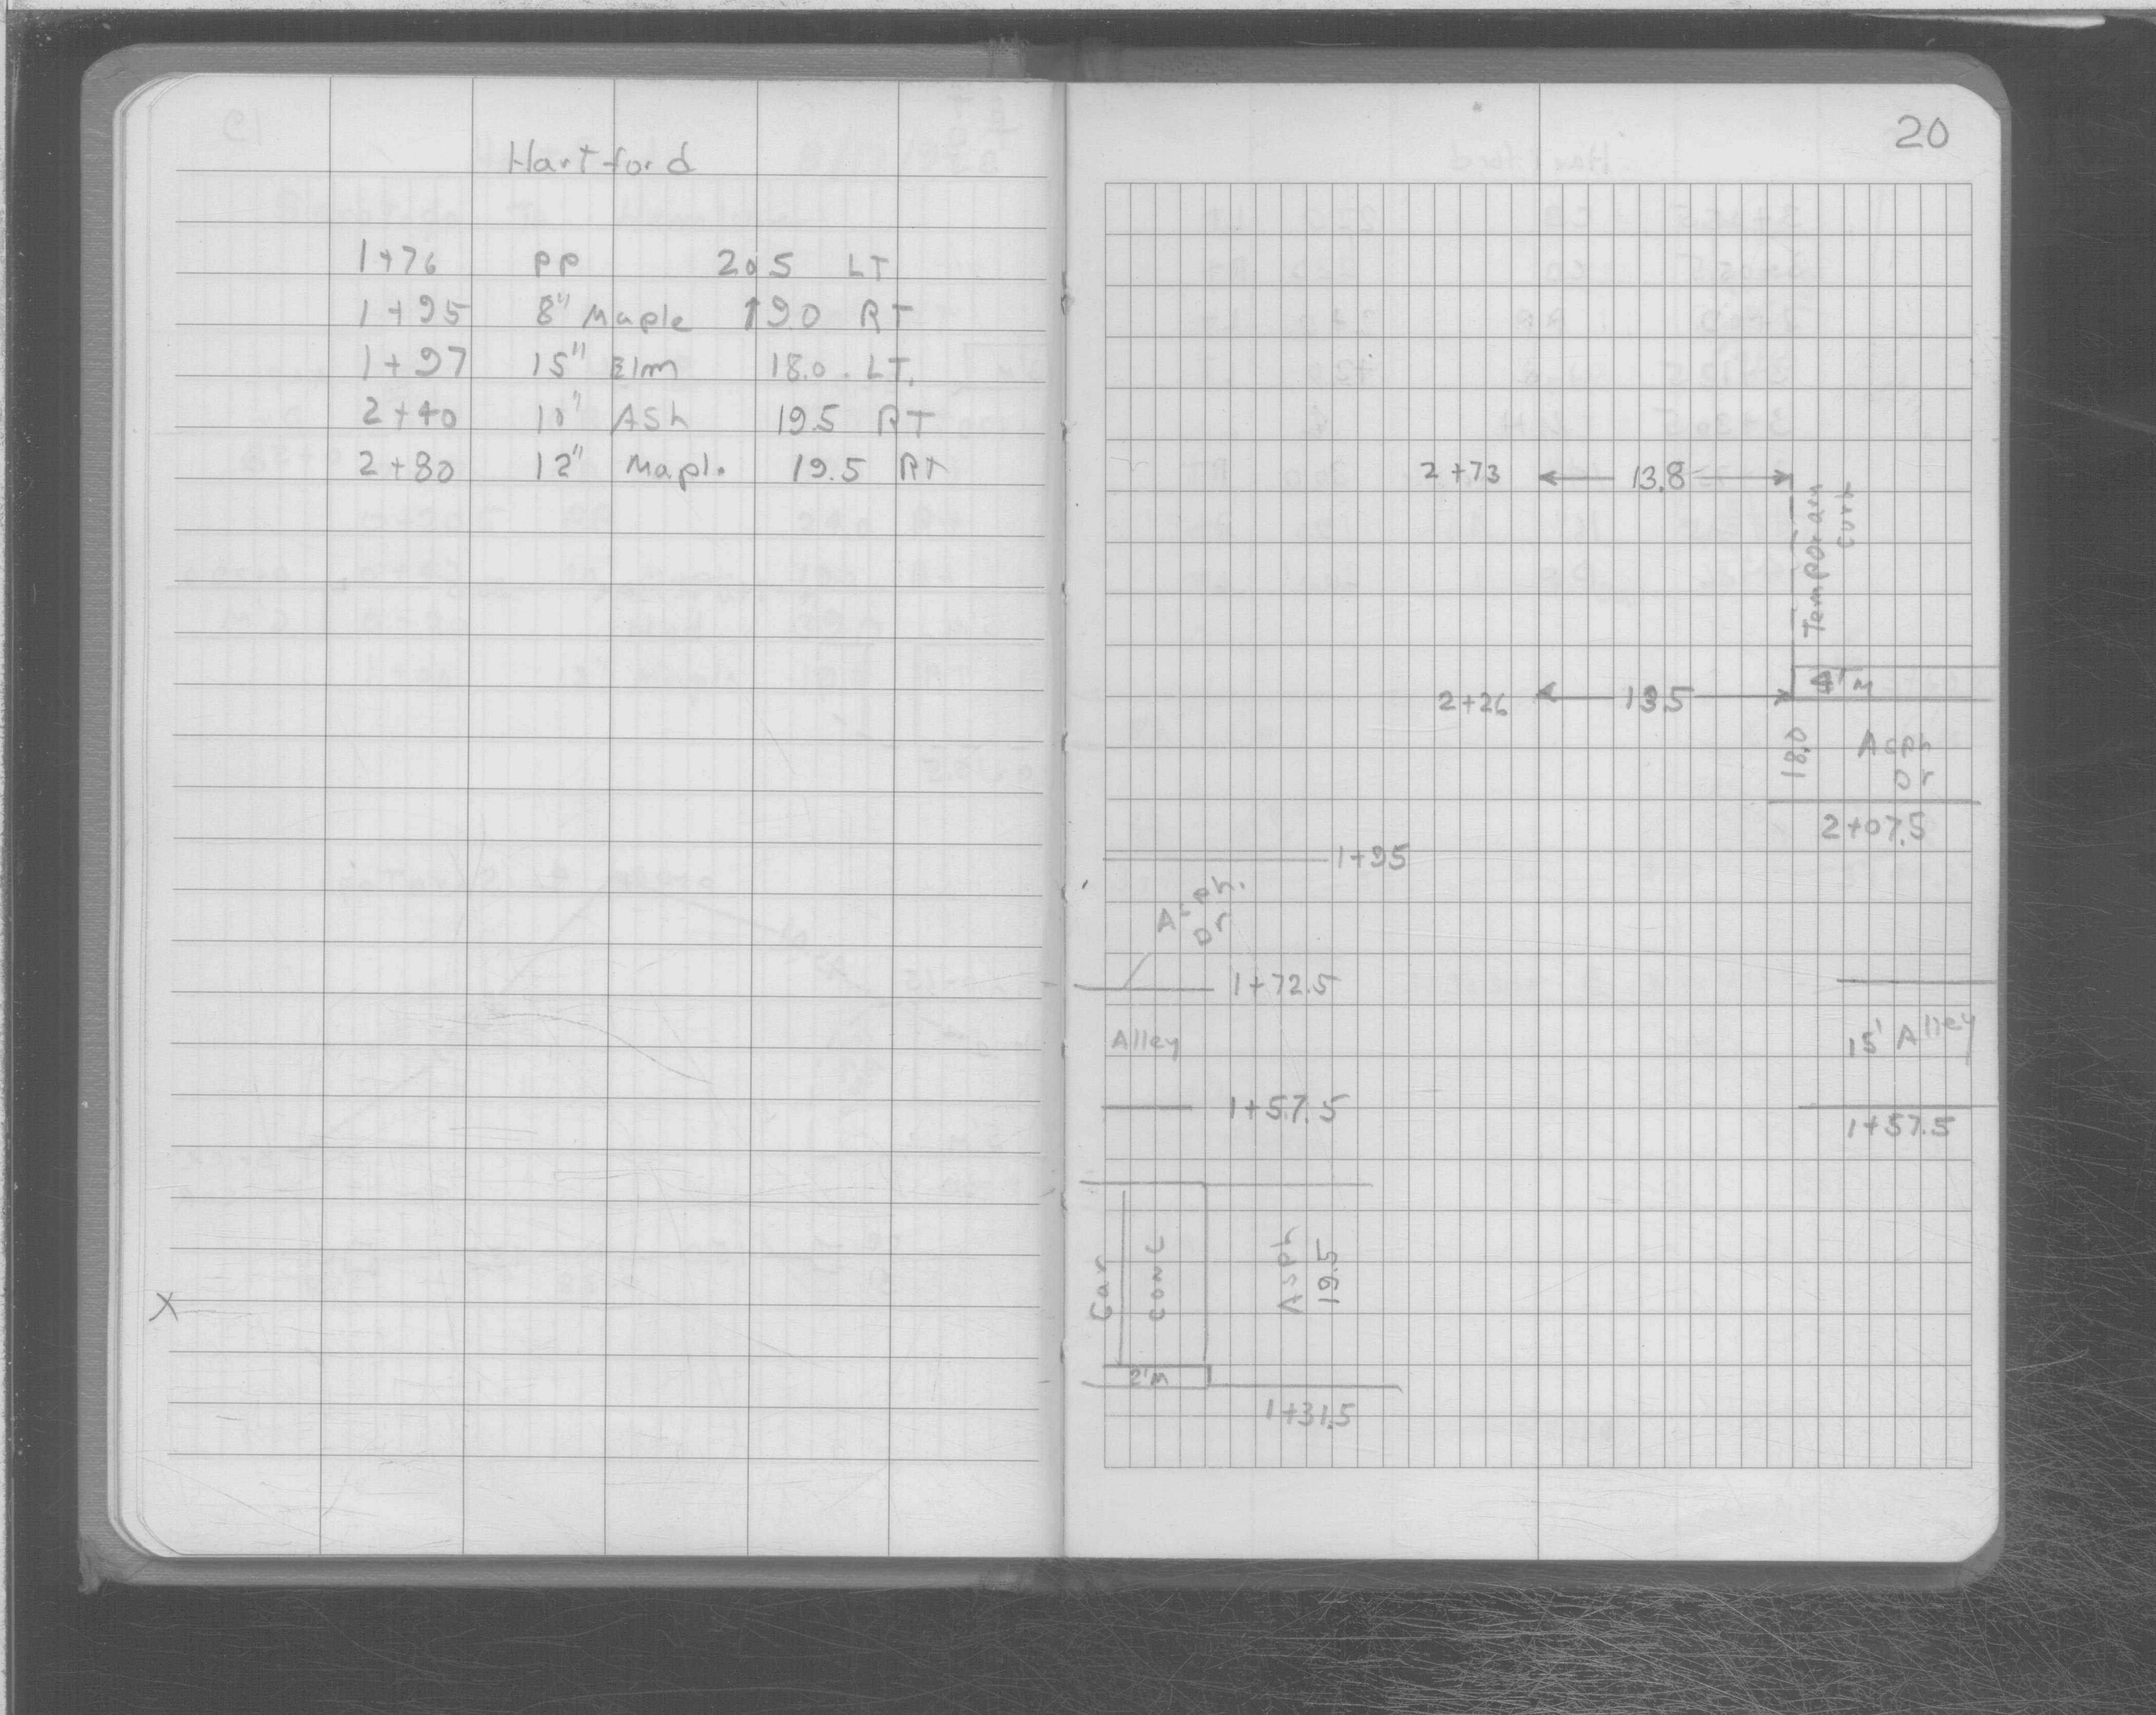 Hartford
1+76 PP 20.5 LT
1+95 8" Maple 19.0 RT
1+97 15" Elm 18.0 LT.
2+40 10" Ash 19.5 RT
2+80 12" Mapl. 19.5 RT
X
20
2+73 13.8
Temporary
Curb
4' M
2+26 13.5
18.0
Asph
Dr
2+07.5
1+95
Asph.
Dr
1+72.5
Alley
15' Alley
1+57.5
1+57.5
Gar
Conc
Asph
19.5
2'M
1+31.5